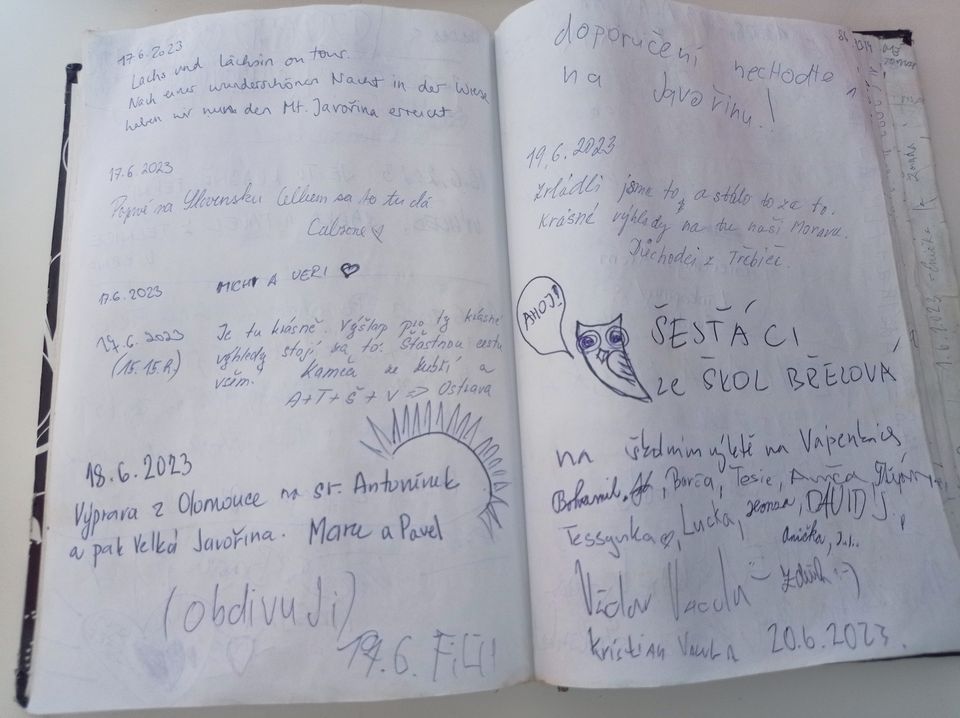 17.6.2023
Lachs und Lächsin on tour.
Nach einer wunderschönen Nacht in der Wiese
haben wir nun den Mt. Javořina erreicht.
17.6.2023
Poprvé na Slovensku Celkem sa to tu dá
17.6.2023 MICHI A VERI
17.6.2023 Je tu krásně. Výšlap pro ty krásné
(15.15.h.) výhledy stojí za to. Šťastnou cestu
všem. Kamča ze
A+T+Š+V => Ostrava
18.6.2023
Výprava z Olomouce na sv. Antonínek
a pak Velká Javořina. Marc a Pavel
(obdivuji)
19.6. Filip
doporučení nechoďte
na Javořinu!
19.6.2023
Zvládli jsme to, a stálo to za to.
Krásné výhledy na tu naši Moravu.
Důchodci z Třebíče.
AHOJ!
ŠESŤÁCI
ze ŠKOL BŘEZOVÁ
na školním výletě na Vápenkách
Bohumil, Barča, Terie, Anča,
Tessynka, Lucka, DAVID J.
Anička, Juli.
Václav Vacula
Kristian 20.6.2023